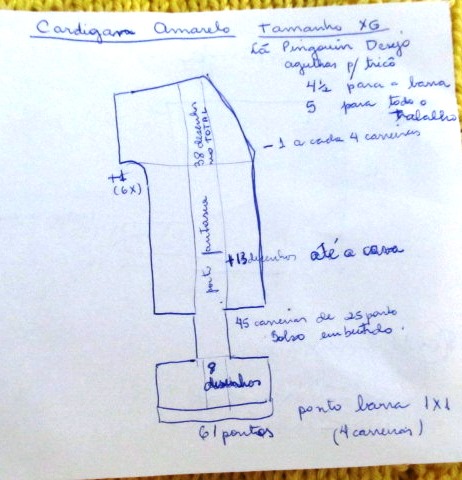 Cardigan Amarelo Tamanho XG
Lã Pingouin Desejo
agulhas p/ tricô
4½ para a barra
5 para todo o
trabalho
38 desenhos
no TOTAL
-1 a cada 4 carreiras
(6x)
ponto fantasia
+13 desenhos até a cava
45 carreiras de 25 ponto
Bolso embutido.
8
desenhos
ponto barra 1X1
61 pontos (4 carreiras)